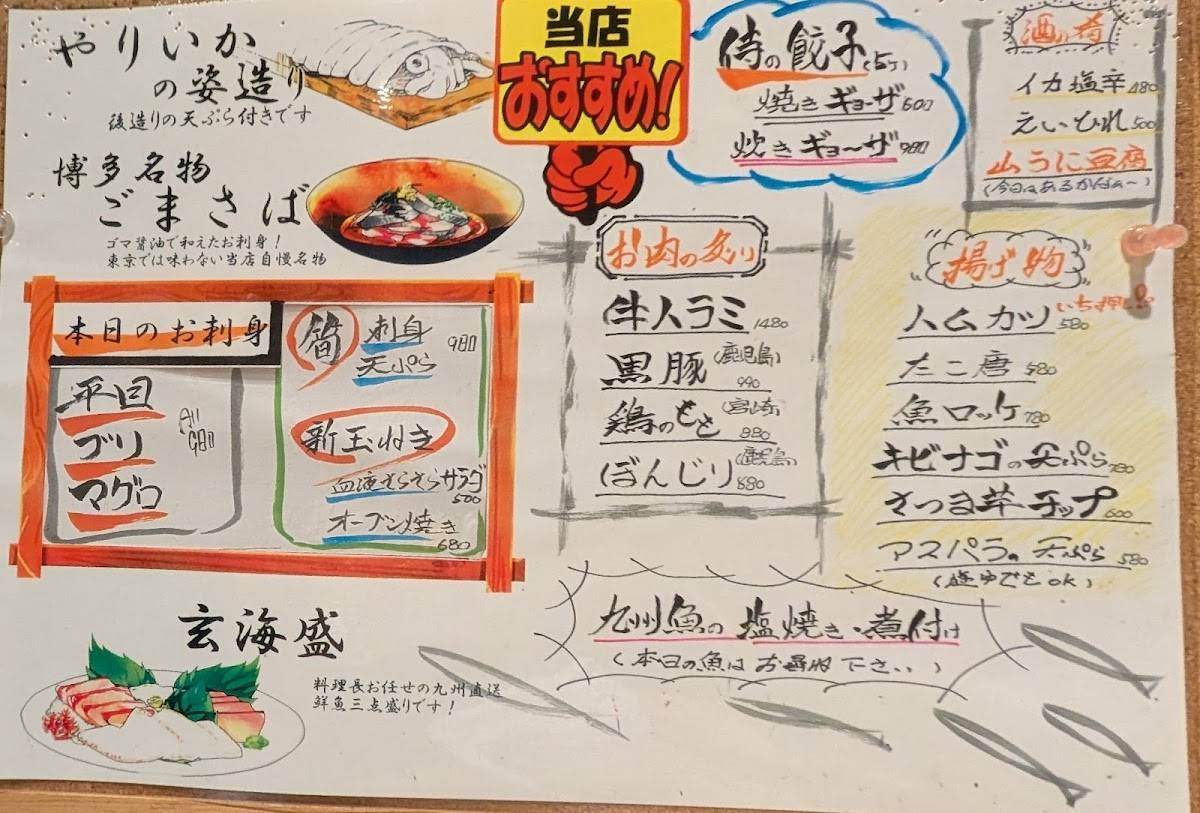 やりいか
の姿造り
後造りの天ぷら付きです
博多名物
ごまさば
ゴマ醤油で和えたお刺身！
東京では味わない当店自慢名物
当店
おすすめ！
侍の餃子(5ヶ)
焼きギョーザ600
炊きギョーザ980
酒の肴
イカ塩辛480
えいひれ500
山うに豆腐
(今日はあるかなぁ〜)
本日のお刺身
平目
ブリ
マグロ
All
980
筍 刺身
天ぷら
980
新玉ねぎ
血液さらさらサラダ
500
オーブン焼き
680
お肉の炙り
牛ハラミ1480
黒豚(鹿児島)
990
鶏のもも(宮崎)
880
ぼんじり(鹿児島)
880
揚げ物
ハムカツ いち押し!!
580
たこ唐 580
魚ロッケ780
キビナゴの天ぷら780
さつま芋チップ600
アスパラの天ぷら580
(塩ゆでもOK)
玄海盛
料理長お任せの九州直送
鮮魚三点盛りです！
九州魚の塩焼き・煮付け
(本日の魚はお尋ね下さい)